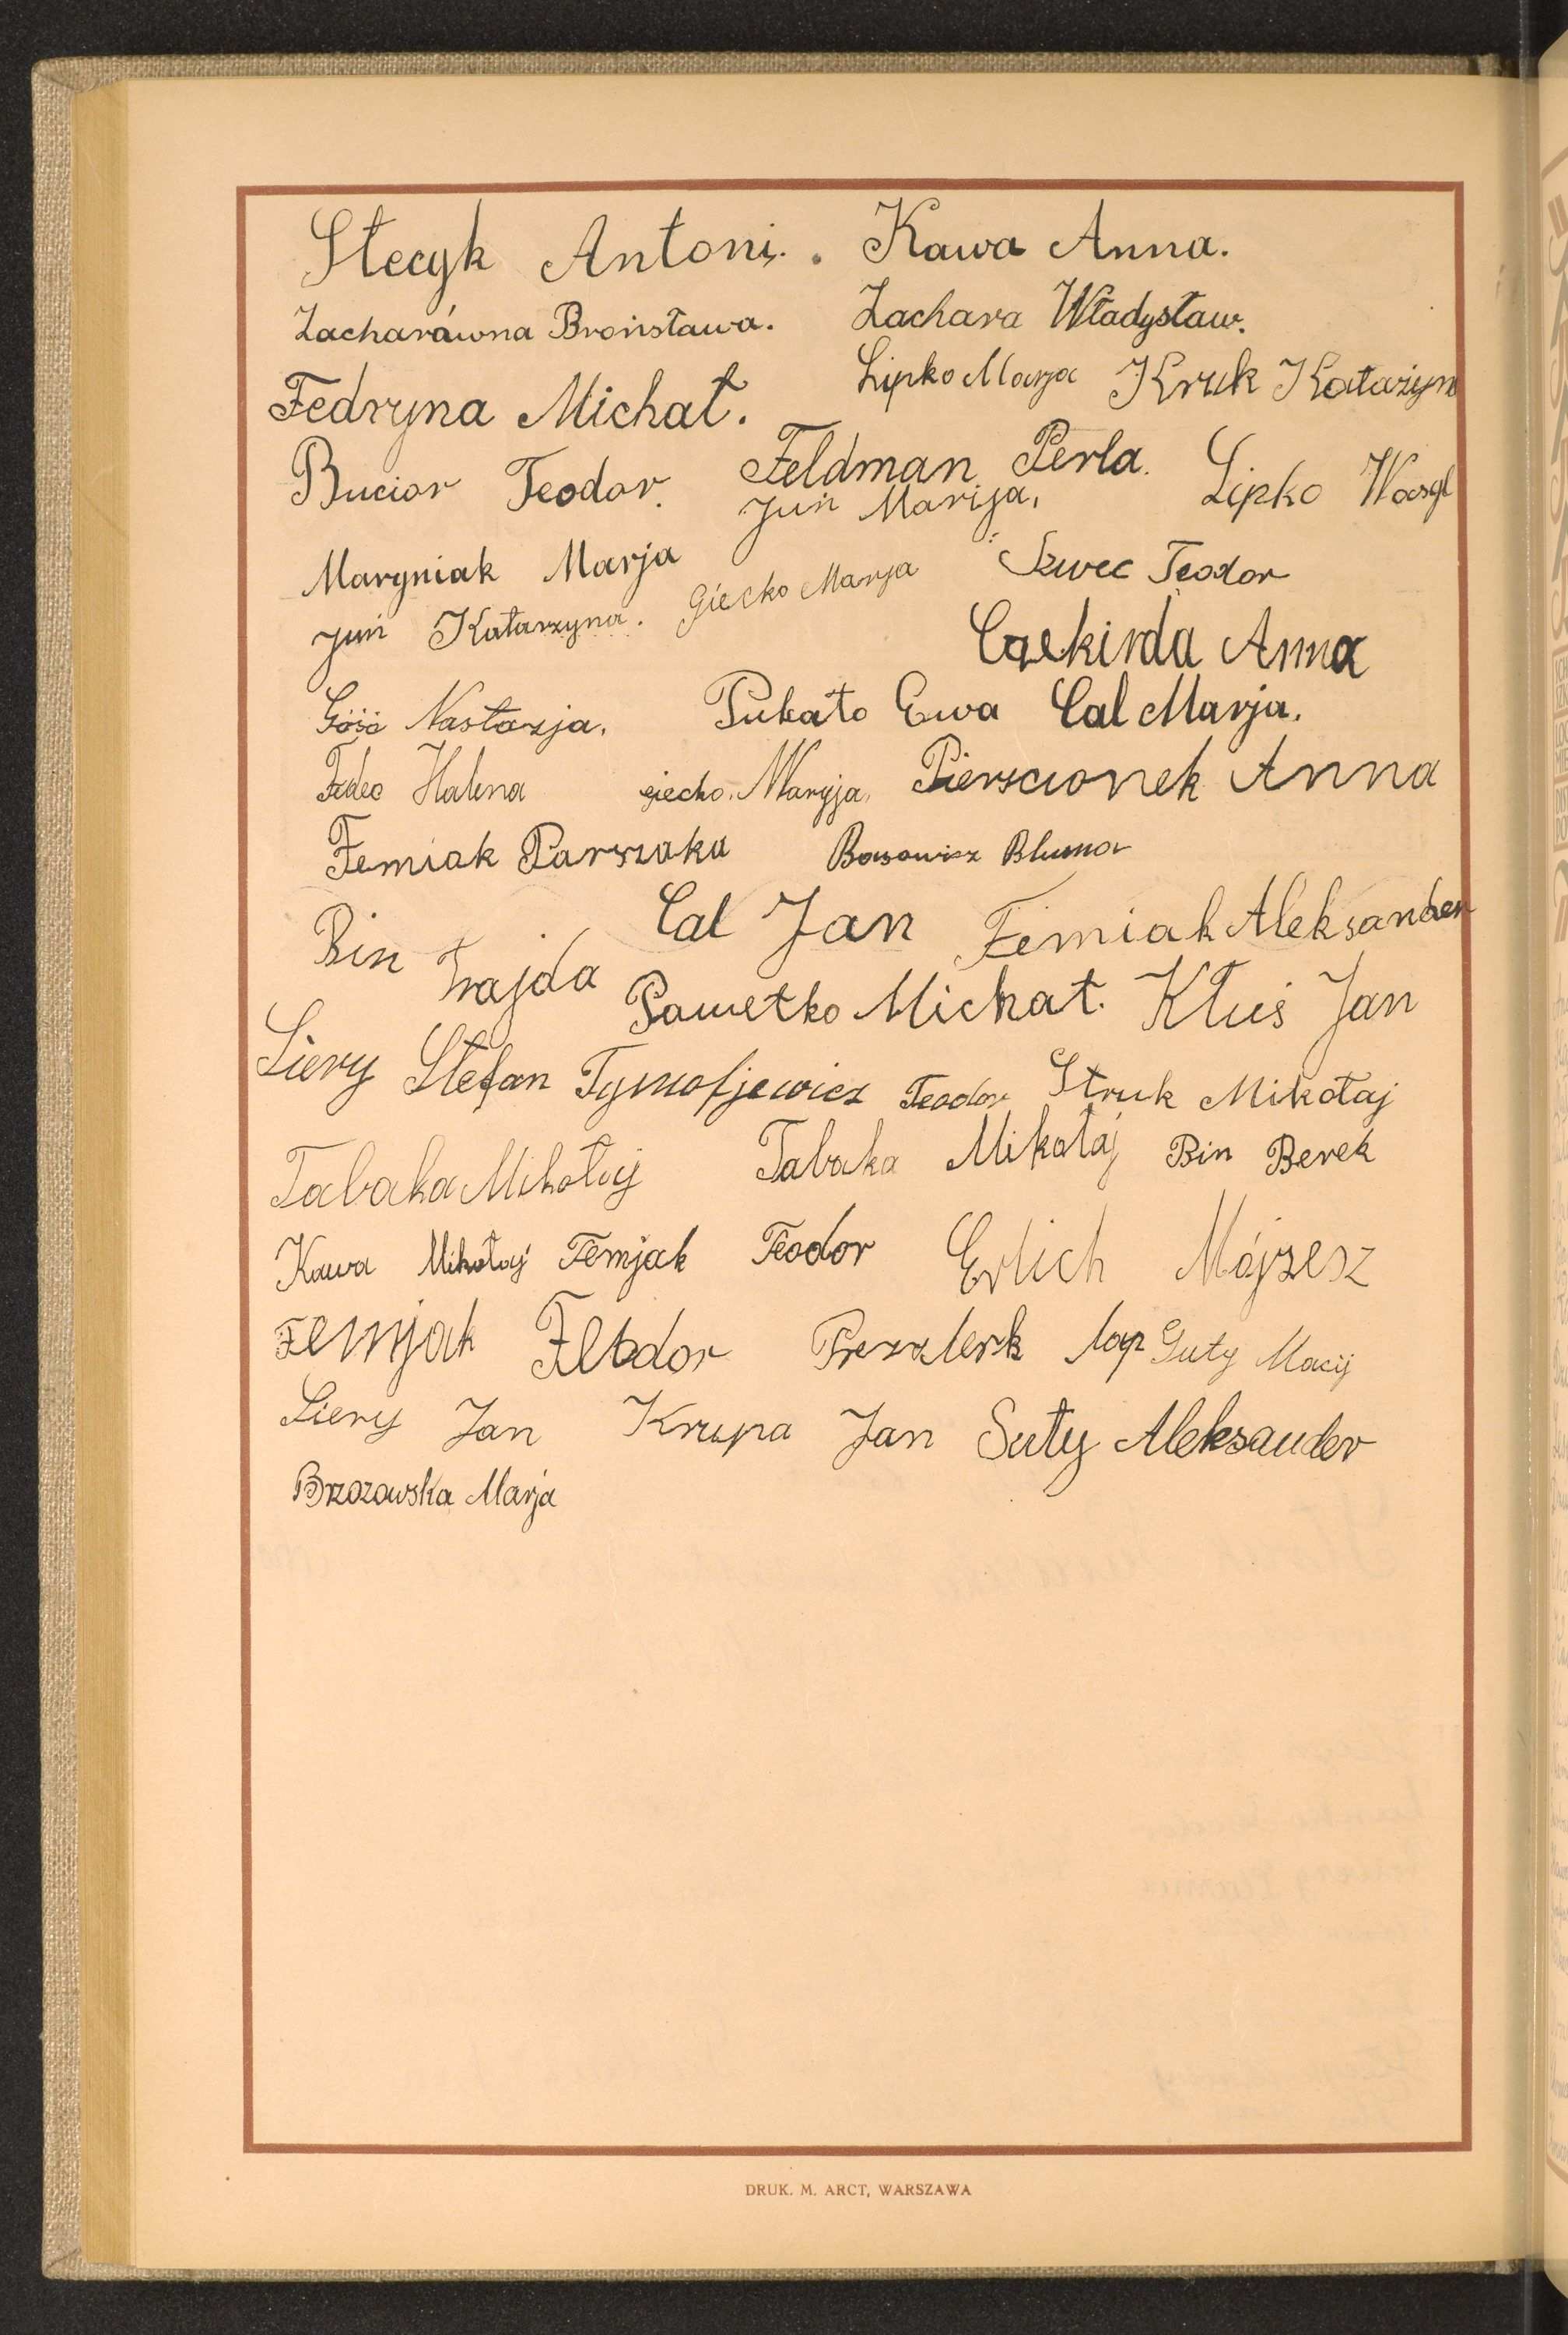 Stecyk Antoni. . Kawa Anna.
Zacharówna Bronisława. Zachara Władysław.
Fedryna Michał. Lipko Marja Kruk Katażyn
Bucior Teodor. Feldman Perla. Lipko Wasyl
Juń Marija.
Maryniak Marja Szwec Teodor
Juń Katarzyna. Giecko Marja
Czekirda Anna
Góść Nastazja. Pukało Ewa Cal Marja.
Fedec Halena giecko. Maryja, Pierscionek Anna
Femiak Parazaka Bluma
Cal Jan Femiak Aleksander
Bin Frajda
Pawełko Michał. Kłuś Jan
Siery Stefan Tymofjewicz Teodor Struk Mikołaj
Tabaka Mikołaj Tabaka Mikołaj Bin Berek
Kawa Mikołaj Femjak Teodor Erlich Mójzesz
Femjak Feodor Guty Macij
Siery Jan Krupa Jan Suty Aleksander
Brzozowska Marja
DRUK. M. ARCT, WARSZAWA